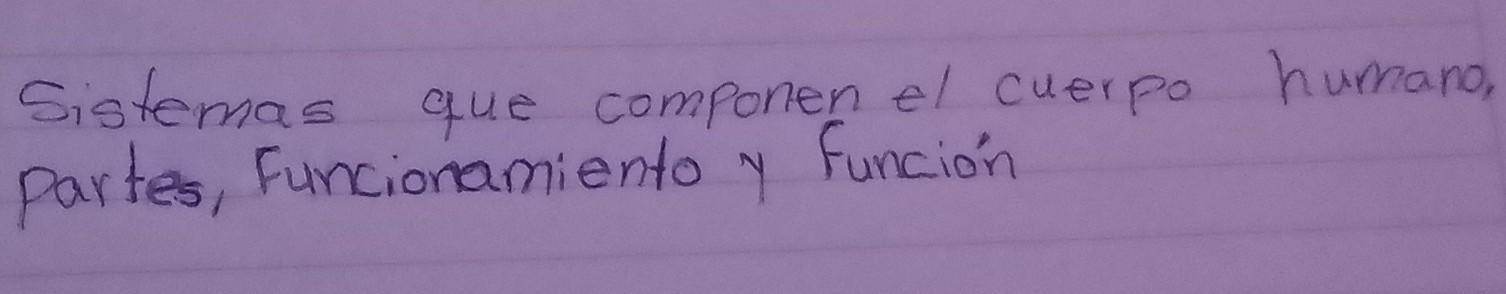 Sistemas que componen el cuerpo humano,
partes, Funcionamiento y función